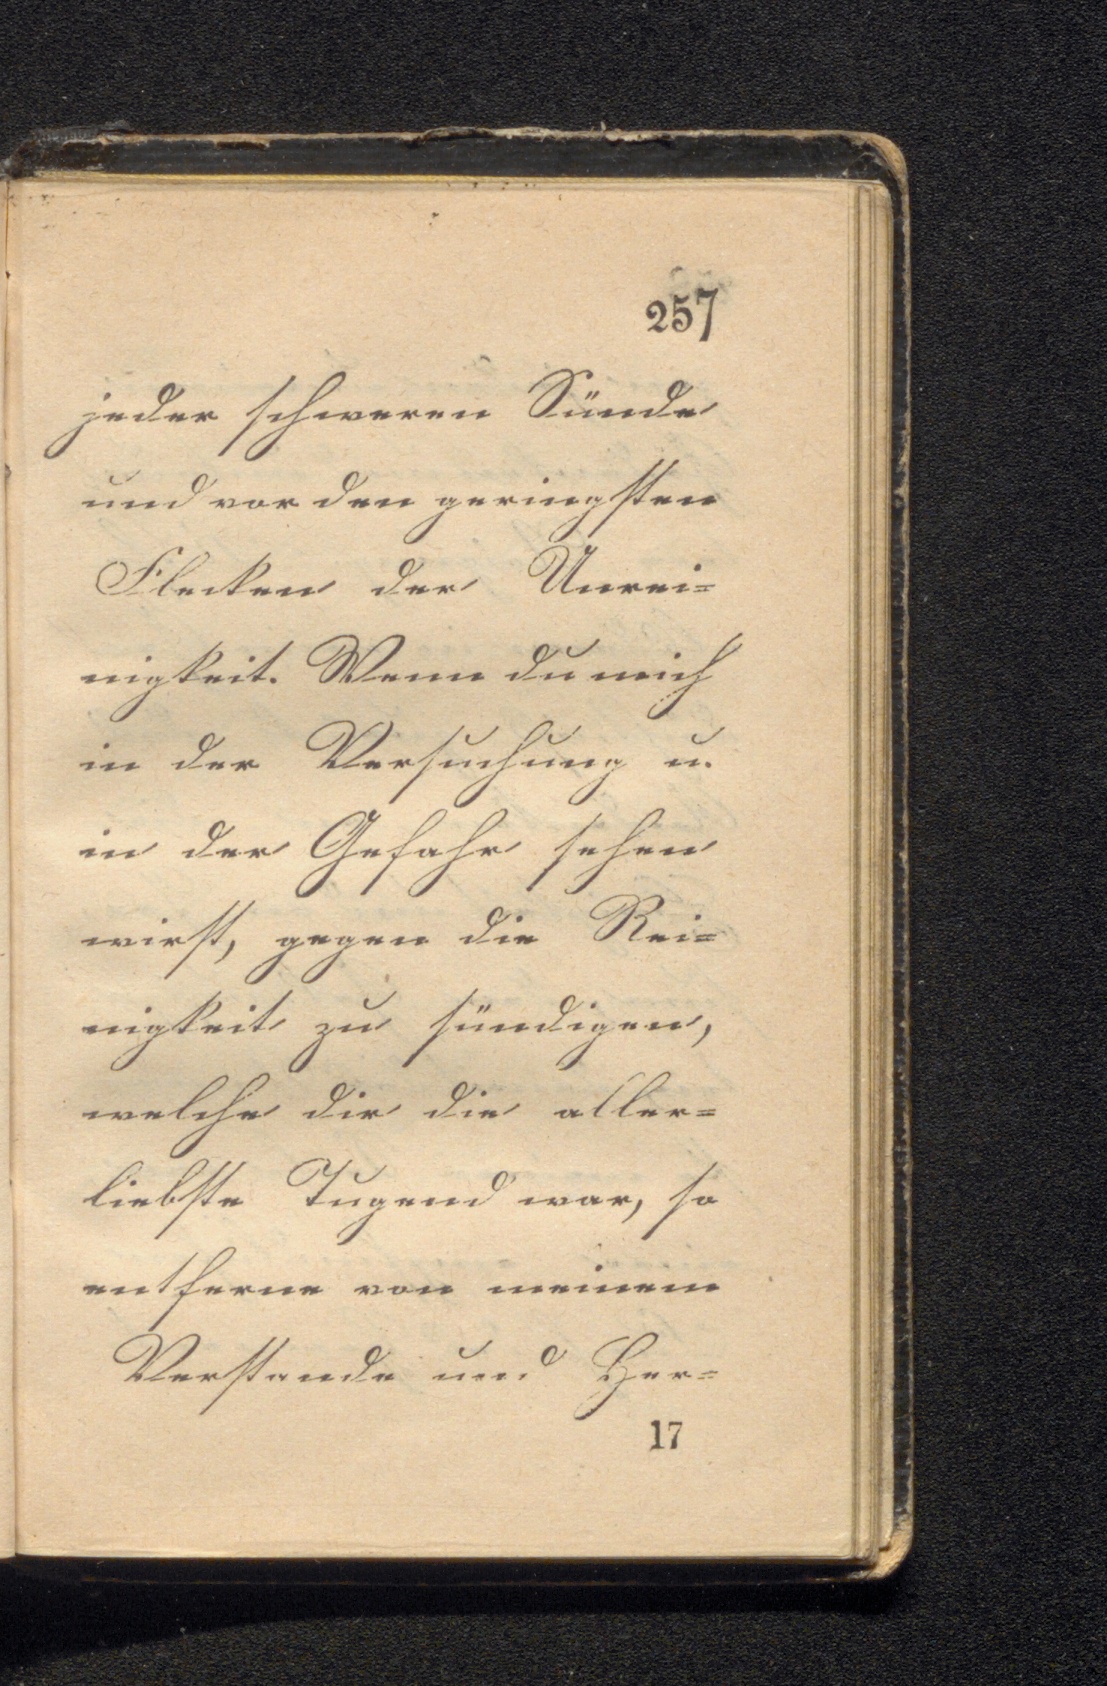 257
jeder schweren Sünde
und vor den geringsten
Flecken der Unrei=
nigkeit. Wenn du mich
in der Versuchung u.
in der Gefahr sehen
wirst, gegen die Rei=
nigkeit zu sündigen,
welche dir die aller=
liebste Tugend war, so
entferne von meinem
Verstande und Her=
17